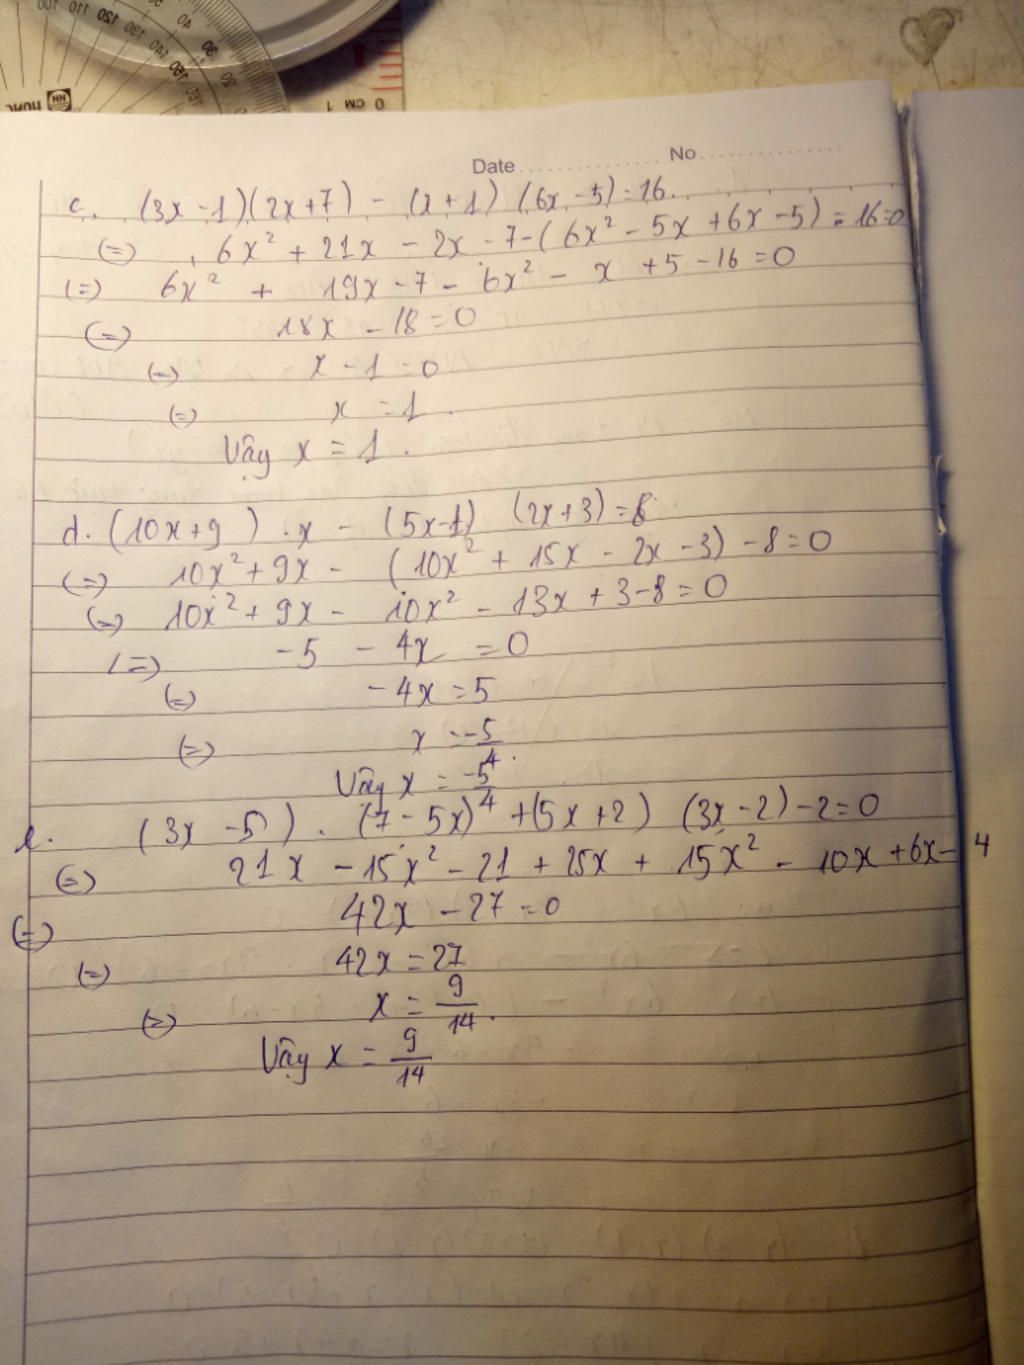 Date.............. No..................
c. (3x - 1)(2x+7) - (x+1) (6x-5)=16.
(=) 6x² + 21x - 2x - 7-(6x² - 5x +6x -5) = 16=0
(=) 6x² + 19x - 7 - 6x² - x +5 -16=0
(=) 18x - 18=0
(=) x - 1 =0
(=) x = 1.
Vậy x = 1.
d. (10x+9).x - (5x-1) (2x+3)=8
(=) 10x²+9x - (10x² + 15x - 2x -3) -8=0
(=) 10x²+9x - 10x² - 13x + 3-8=0
(=) -5 - 4x =0
(=) -4x =5
(=) x = -5/4.
Vậy x = -5/4
e. (3x -5). (7-5x) +(5x+2) (3x-2)-2=0
(=) 21x - 15x² -21 + 25x + 15x² - 10x +6x- 4
(=) 42x -27=0
(=) 42x =27
(=) x = 9/14.
Vậy x = 9/14